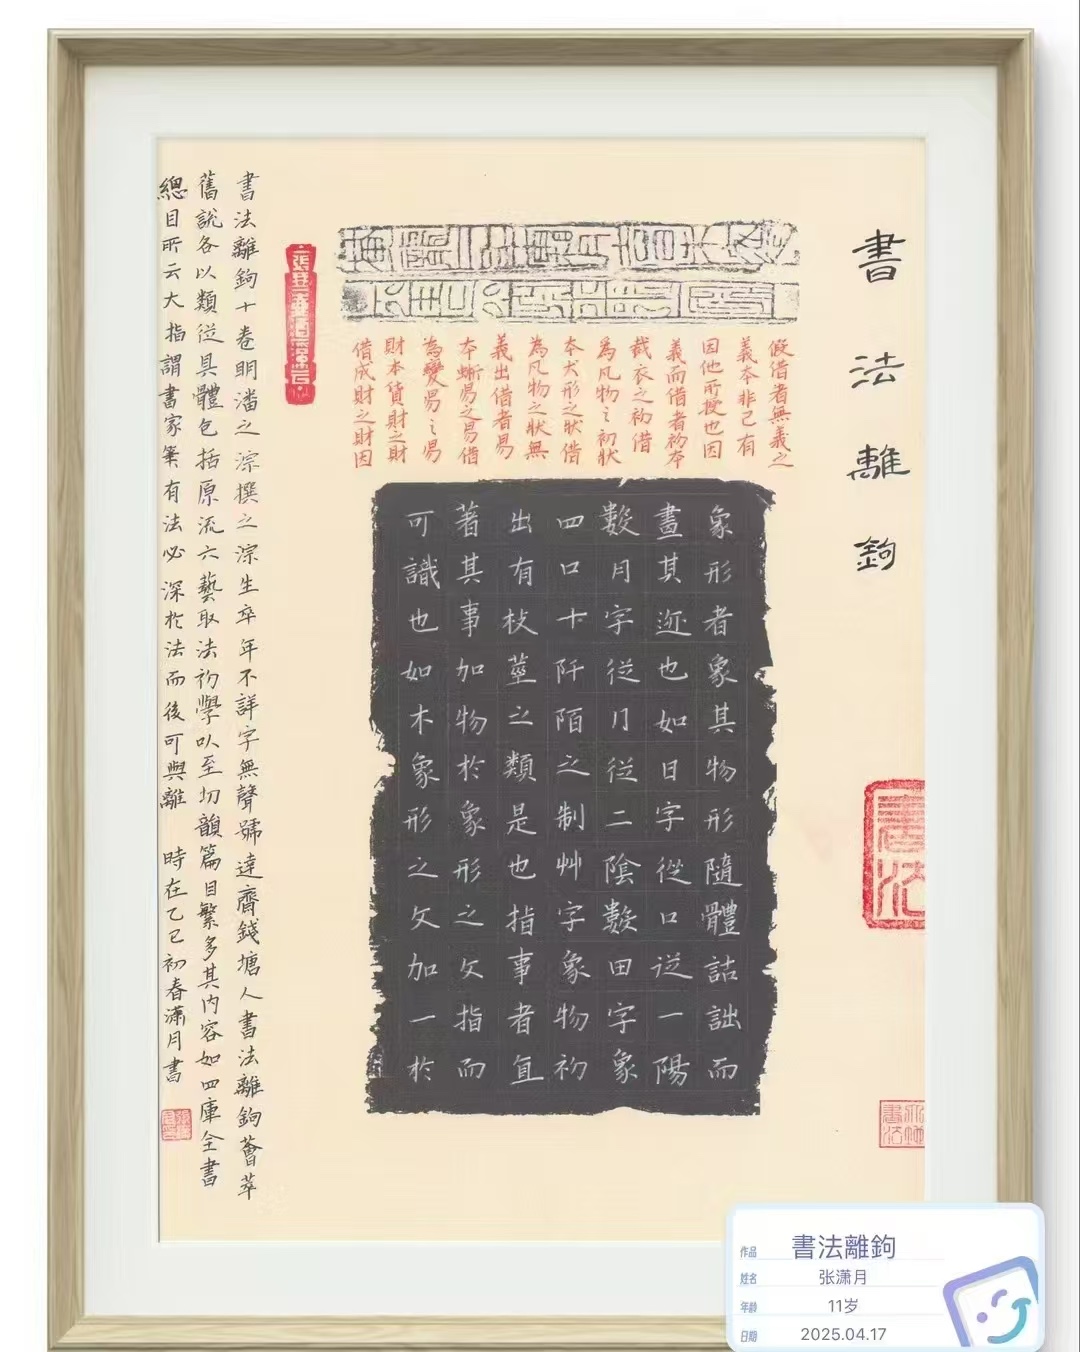 書法離鉤
假借者無義之
義本非己有
因他所授也因
義而借者初本
裁衣之初借
為凡物之初狀
本犬形之狀借
為凡物之狀無
義出借者易
本蜥易之易借
為變易之易
財本貨財之財
借成財之財因
象形者象其物形隨體詰詘而
畫其迹也如日字從口從一陽
數月字從月從二陰數田字象
四口十阡陌之制艸字象物初
出有枝莖之類是也指事者直
著其事加物於象形之文指而
可識也如木象形之文加一於
書法離鉤十卷明潘之淙撰之淙生卒年不詳字無聲號達齋錢塘人書法離鉤薈萃
舊說各以類從具體包括原流六藝取法初學以至切韻篇目繁多其內容如四庫全書
總目所云大指謂書家筆有法必深於法而後可與離 時在乙巳初春潇月書
書法
作品 書法離鉤
姓名 张潇月
年龄 11岁
日期 2025.04.17